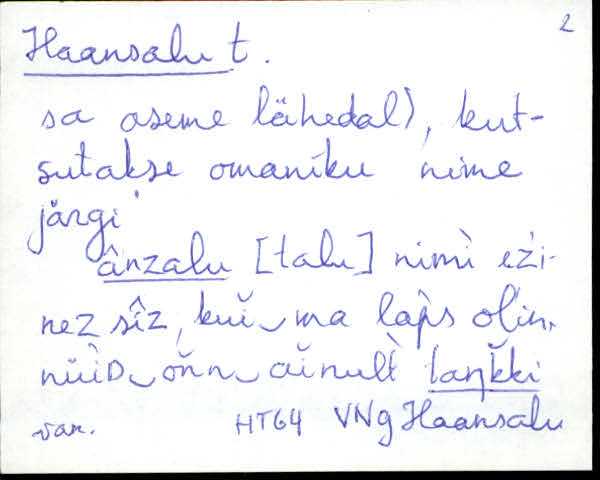 2
Haansalu t.
sa aseme lähedal), kut-
sutakse omaniku nime
järgi
ânzalu [talu] nimì ežì-
nez sîz, kuĭ‿ma laps olin,
nüìD‿oňn‿aĭnult̀ laŋk̆ki
van. HTG4 VNg Haansalu